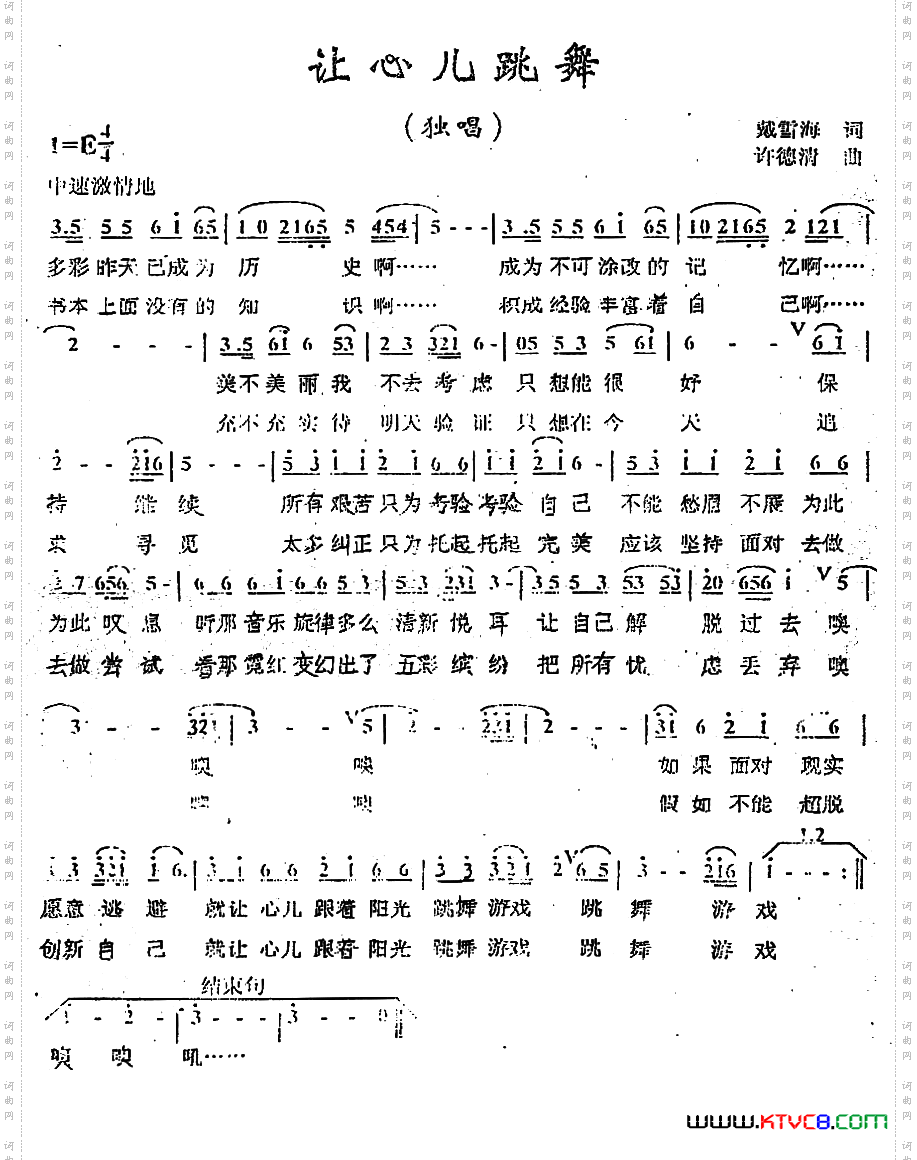 让心儿跳舞
（独唱）
1=E 4/4
戴暂海 词
许德清 曲
中速激情地
3.5 5 5 6 i 65 | 1 0 2165 5 454 | 5 - - - | 3.5 5 5 6 i 65 | 10 2165 2 121 |
多彩昨天已成为 历 史啊…… 成为不可涂改的记 忆啊……
书本上面没有的 知 识啊…… 积成经验丰富着自 己啊……
2 - - - | 3.5 6i 6 53 | 2 3 321 6 - | 05 5 3 5 6i | 6 - - V 6 i |
美不美丽我 不去考虑只想能很 好 保
充不充实待 明天验证只想在今 天 追
2 - - 2i6 | 5 - - - | 5 3 i i 2 i 6 6 | i i 2 i 6 - | 5 3 i i 2 i 6 6 |
持 继续 所有艰苦只为考验考验自己 不能愁眉不展为此
求 寻觅 太多纠正只为托起托起完美 应该坚持面对去做
3 7 656 5 - | 6 6 6 i 6 6 5 3 | 3 5 231 3 - | 3 5 5 3 53 53i | 20 656 i V 5 |
为此叹息 听那音乐旋律多么 清新悦耳 让自己解 脱过去噢
去做尝试 看那霓红变幻出了 五彩缤纷 把所有忧 虑丢弃噢
3 - - 321 | 3 - - V 5 | 2 - - 231 | 2 - - - | 3i 6 2 i 6 6 |
噢 噢 如果面对现实
噢 噢 假如不能超脱
3 3 321 i 6. | i i 6 6 2 i 6 6 | 3 3 3 2 2 i 2 V 6 5 | 3 - - 2i6 | i - - - :||
1.2
愿意逃避 就让心儿跟着阳光 跳舞游戏 跳舞 游戏
创新自己 就让心儿跟着阳光 跳舞游戏 跳舞 游戏
结束句
i - 2 - | 3 - - - | 3 - - 0 ||
噢 噢 吼……
www.KTVC8.com
词曲网